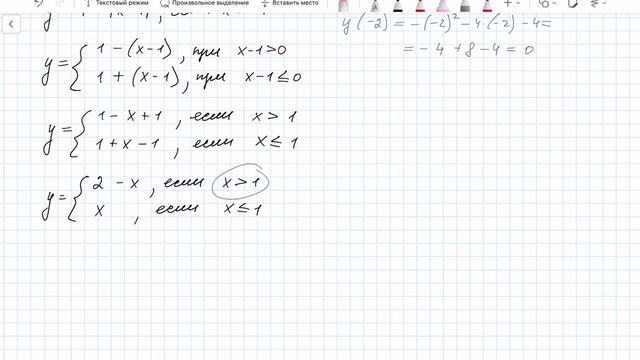 Текстовый режим Произвольное выделение Вставить место
y(-2) = -(-2)² - 4·(-2) - 4 =
= -4 + 8 - 4 = 0
y = { 1 - (x-1), при x-1>0
1 + (x-1), при x-1≤0
y = { 1 - x + 1, если x > 1
1 + x - 1, если x ≤ 1
y = { 2 - x, если x > 1
x, если x ≤ 1